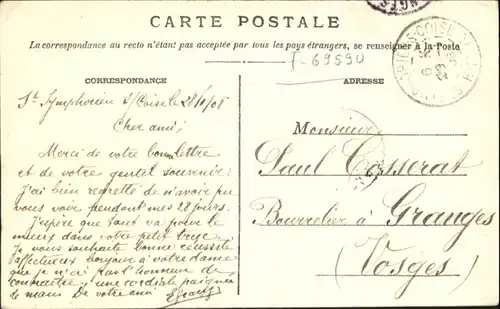 CARTE POSTALE
La correspondance au recto n'étant pas acceptée par tous les pays étrangers, se renseigner à la Poste
I-69590
CORRESPONDANCE
ADRESSE
St Symphorien s/ Coise le 28/9/08
Cher ami,
Merci de votre bonne lettre
et de votre gentil souvenir.
J'ai bien regretté de n'avoir pu
vous voir pendant mes 28 jours.
J'espère que tout va pour le
mieux dans votre petit truc
Je vous souhaite bonne réussite
affectueux bonjour à votre dame
que je n'ai pas l'honneur de
connaître, une cordiale poignée
de main De votre ami
Monsieur
Paul Cosserat
Bourrelier à Granges
(Vosges)